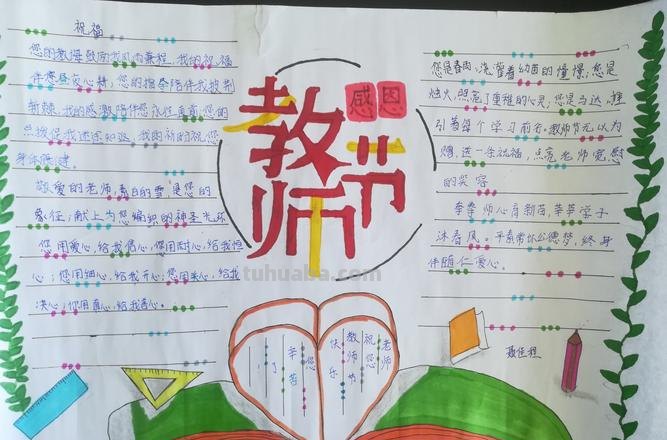 祝福
您的教诲鼓励我风雨兼程，我的祝福
伴您昼夜心耕，您的指令陪伴我披荆
斩棘，我的感激陪伴您永住直前，您的
点拨促我迷途知返，我的祈祷祝您
身体康健。
敬爱的老师，青白的雪，是您的
象征，献上为您编织的神圣光环
您用爱心，给我信心，您用耐心，给我恒
心；您用细心，给我开心；您用关心，给我
决心；您用真心，给我喜心。
感恩
教师节
tuhuaba.com
老师
祝您
教师节
快乐
您
辛苦
了
您是春雨，浇灌着幼苗的憧憬；您是
烛火，照亮了童稚的心灵；您是马达，
引着每个学习前行。教师节无以为
赠，送一条祝福，点亮老师宽慰
的笑容
拳拳师心育新苗，莘莘学子
沐春风。平素常怀公德梦，终身
伴随仁爱心。